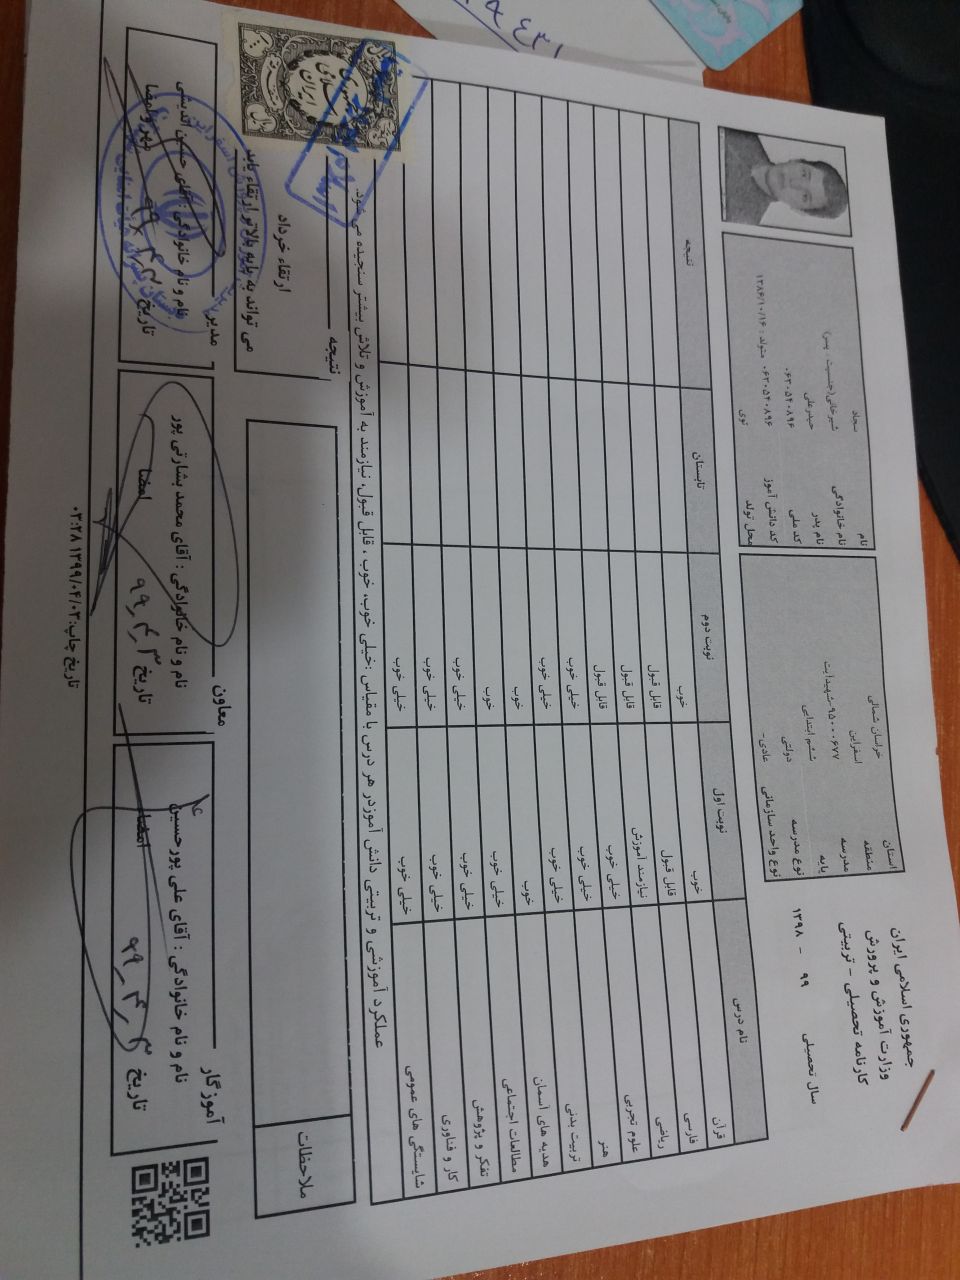 جمهوری اسلامی ایران
وزارت آموزش و پرورش
کارنامه تحصیلی - تربیتی
سال تحصیلی ۹۹ - ۱۳۹۸
استان خراسان شمالی
منطقه اسفراین
مدرسه ۹۵۰۰۰۶۷۷-شهیدایت
پایه ششم ابتدایی
نوع مدرسه دولتی
نوع واحد سازمانی عادی-
نام سجاد
نام خانوادگی شیرخانی(جنسیت: پسر)
نام پدر حیدرعلی
کد ملی ۰۶۳۰۵۴۰۸۹۶
کد دانش آموز ۰۶۳۰۵۴۰۸۹۶ متولد : ۱۳۸۶/۱۰/۱۶
محل تولد نوی
نام درس نوبت اول نوبت دوم تابستان نتیجه
قرآن خوب خوب
فارسی قابل قبول قابل قبول
ریاضی نیازمند آموزش قابل قبول
علوم تجربی خیلی خوب قابل قبول
هنر خیلی خوب خیلی خوب
تربیت بدنی خیلی خوب خیلی خوب
هدیه های آسمان خوب خوب
مطالعات اجتماعی خیلی خوب خوب
تفکر و پژوهش خیلی خوب خیلی خوب
کار و فناوری خیلی خوب خیلی خوب
شایستگی های عمومی خیلی خوب خیلی خوب
عملکرد آموزشی و تربیتی دانش آموزدر هر درس با مقیاس :خیلی خوب، خوب ، قابل قبول، نیازمند به آموزش و تلاش بیشتر سنجیده می شود.
ملاحظات
نتیجه
ارتقاء خرداد
می تواند به پایه بالاتر ارتقاء یابد
آموزگار
نام و نام خانوادگی : آقای علی پورحسین
امضا
تاریخ ۹۹٫۴٫۳
معاون
نام و نام خانوادگی : آقای محمد بشارتی پور
امضا
تاریخ ۹۹٫۴٫۳
مدیر
نام و نام خانوادگی : آقای حسین قدیسی
مهر و امضا
تاریخ ۹۹٫۴٫۳
تاریخ چاپ:۱۳۹۹/۰۴/۰۳ ۰۲:۲۸